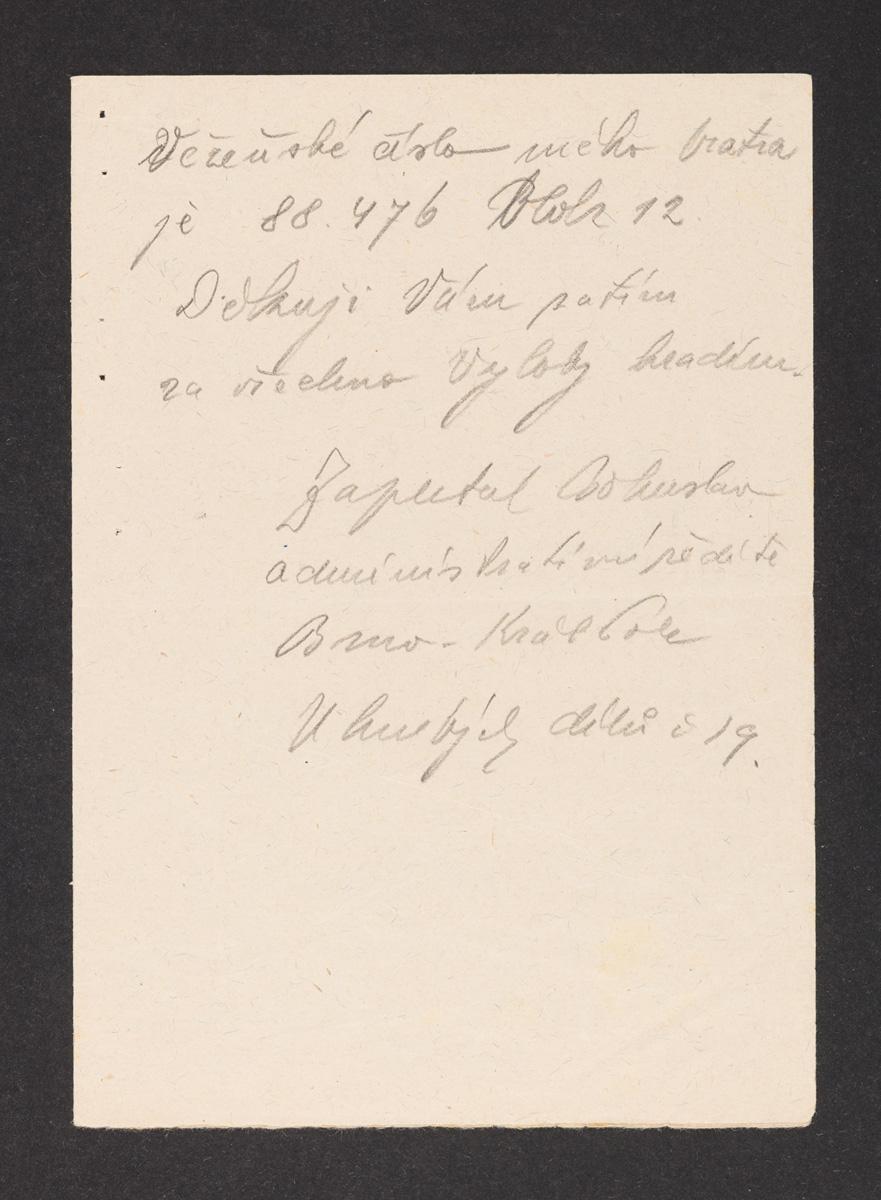 Vězeňské číslo mého bratra
je 88.476 Block 12
Děkuji Vám zatím
za všechno Vylohy hradím.
Zapletal Bohuslav
administrativní ředitel
Brno - Král Pole
U hnězdných dílů č 19.